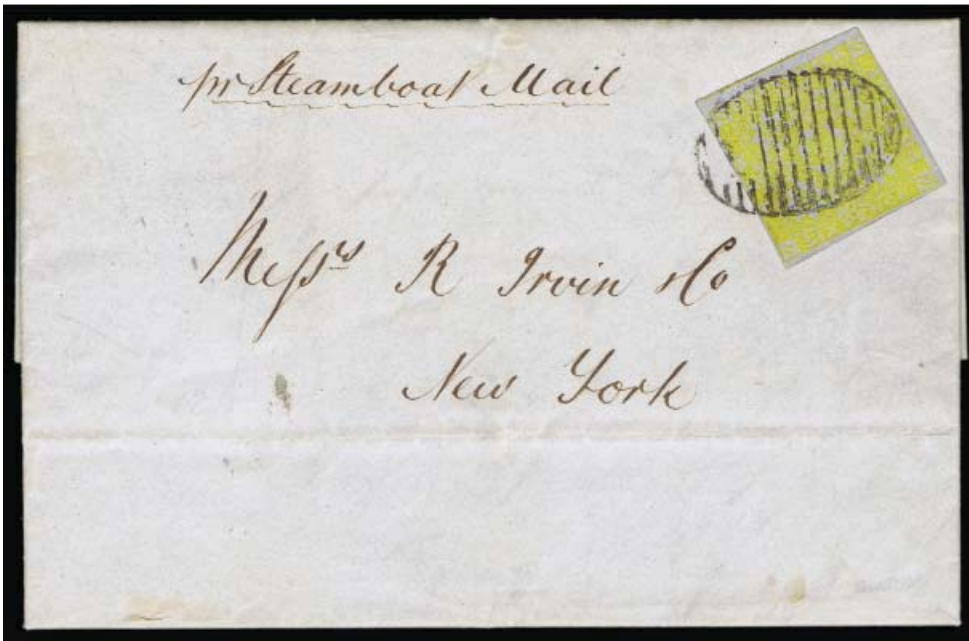 pr Steamboat Mail
Messrs R Irvin & Co
New York